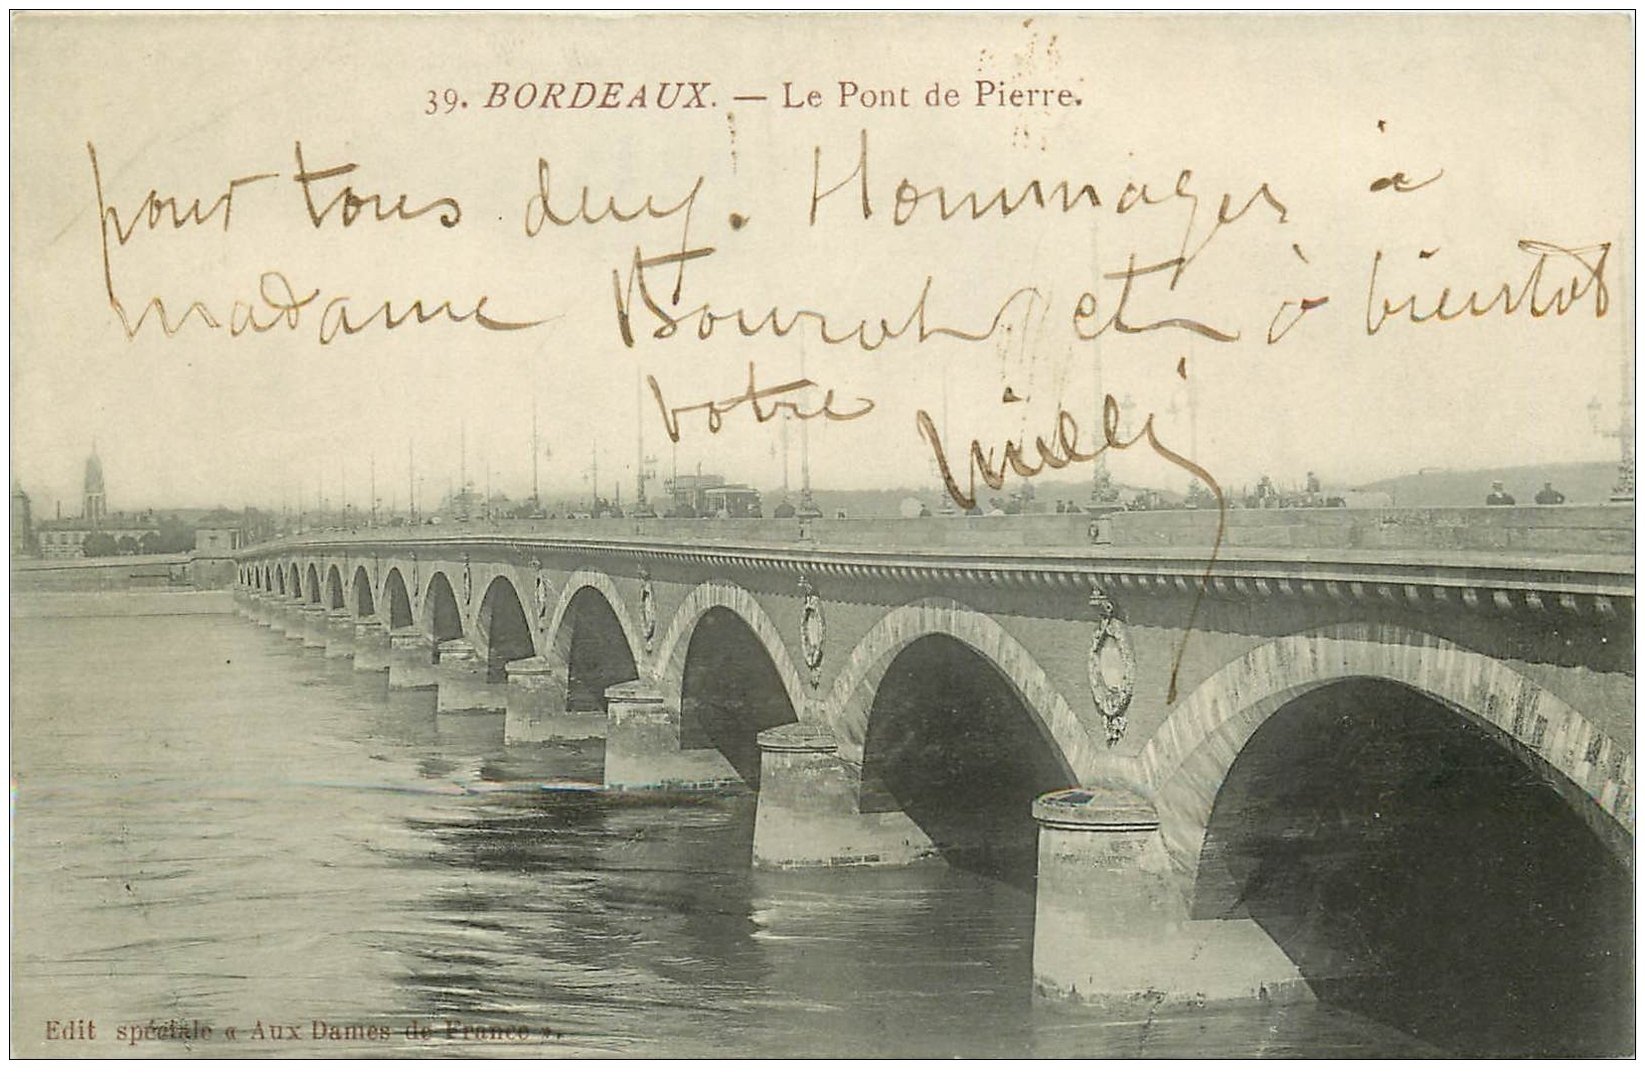 39. BORDEAUX. — Le Pont de Pierre.
pour tous deux. Hommages à
madame et à bientot
votre
Edit spéciale « Aux Dames de France ».